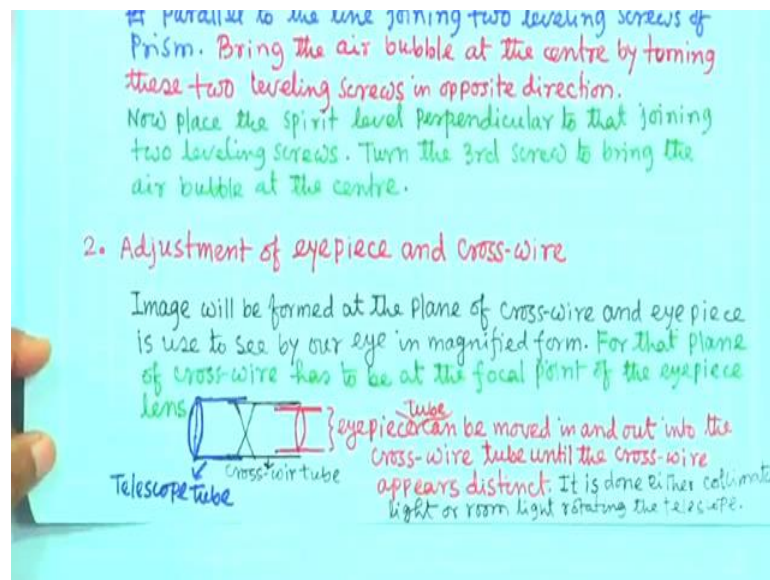 # parallel to the line joining two leveling screws of
Prism. Bring the air bubble at the centre by turning
these two leveling screws in opposite direction.
Now place the spirit level perpendicular to that joining
two leveling screws. Turn the 3rd screw to bring the
air bubble at the centre.
2. Adjustment of eyepiece and cross-wire
Image will be formed at the plane of cross-wire and eyepiece
is use to see by our eye in magnified form. For that plane
of cross-wire has to be at the focal point of the eyepiece
lens
tube
eyepiece can be moved in and out into the
cross-wire tube until the cross-wire
appears distinct. It is done either collimate
light or room light rotating the telescope.
cross-wir tube
Telescope tube